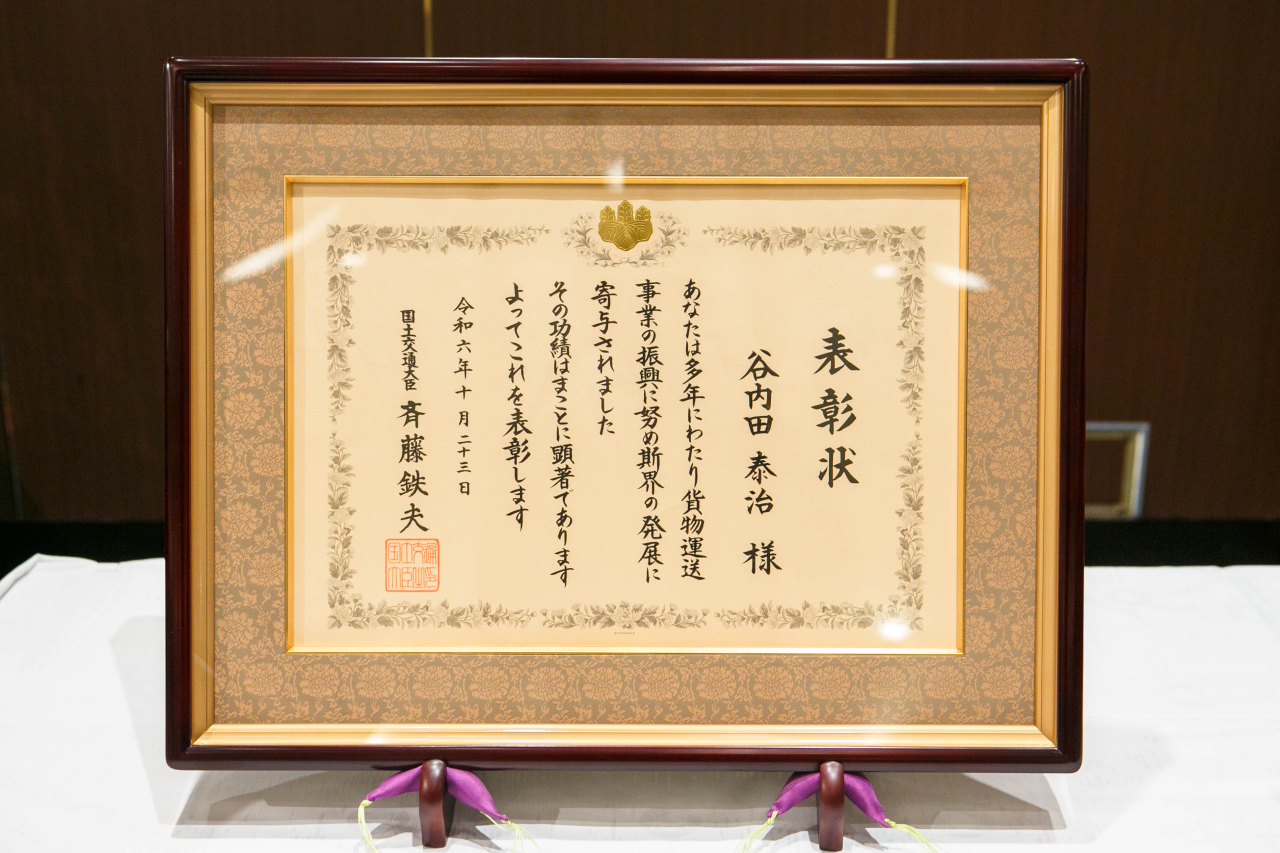 表彰状
谷内田 泰治 様
あなたは多年にわたり貨物運送
事業の振興に努め斯界の発展に
寄与されました
その功績はまことに顕著であります
よってこれを表彰します
令和六年十月二十三日
国土交通大臣 斉藤鉄夫
国土交通大臣印